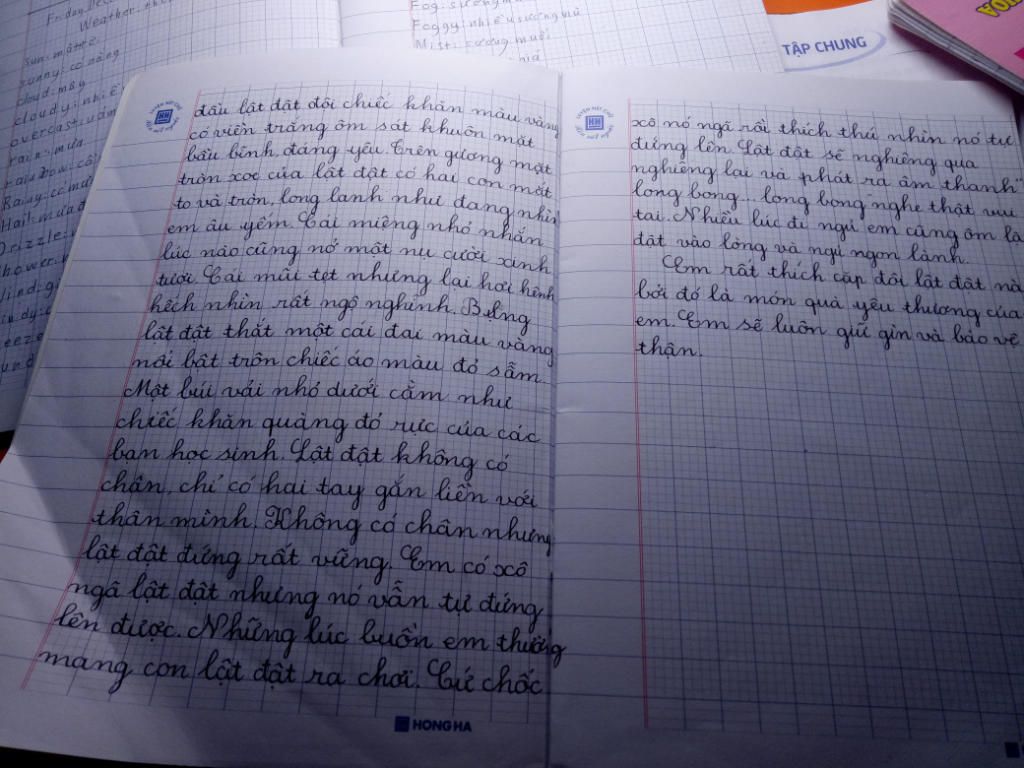 Weather
sun: mặt
sunny: có nắng
cloud: mây
cloudy: nhiề
overcast: u ám
rain: mưa
Rainy: có mư
Hail: mưa đ
Drizzle:
Foggy: nhiều sương mù
Mist: sương muối
TẬP CHUNG
đầu lật đật đôi chiếc khăn màu vàng
có viền trắng ôm sát khuôn mặt
bầu bĩnh, đáng yêu. Trên gương mặt
tròn xoe của lật đật có hai con mắt
to và tròn, long lanh như đang nhìn
em âu yếm. Cái miệng nhỏ nhắn
lúc nào cũng nở một nụ cười xinh
tươi. Cái mũi tẹt nhưng lại hơi hênh
hếch nhìn rất ngộ nghĩnh. Bụng
lật đật thắt một cái đai màu vàng
nổi bật trên chiếc áo màu đỏ sẫm.
Một búi vải nhỏ dưới cằm như
chiếc khăn quàng đỏ rực của các
bạn học sinh. Lật đật không có
chân, chỉ có hai tay gắn liền với
thân mình. Không có chân nhưng
lật đật đứng rất vững. Em có xô
ngã lật đật nhưng nó vẫn tự đứng
lên được. Những lúc buồn em thường
mang con lật đật ra chơi. Cứ chốc
HONG HA
xô nó ngã rồi thích thú nhìn nó tự
đứng lên. Lật đật sẽ nghiêng qua
nghiêng lại và phát ra âm thanh "
long bong... long bong nghe thật vui
tai. Nhiều lúc đi ngủ em cũng ôm lậ
đật vào lòng và ngủ ngon lành.
Em rất thích cặp đôi lật đật nà
bởi đó là món quà yêu thương của
em. Em sẽ luôn giữ gìn và bảo vệ
thận.